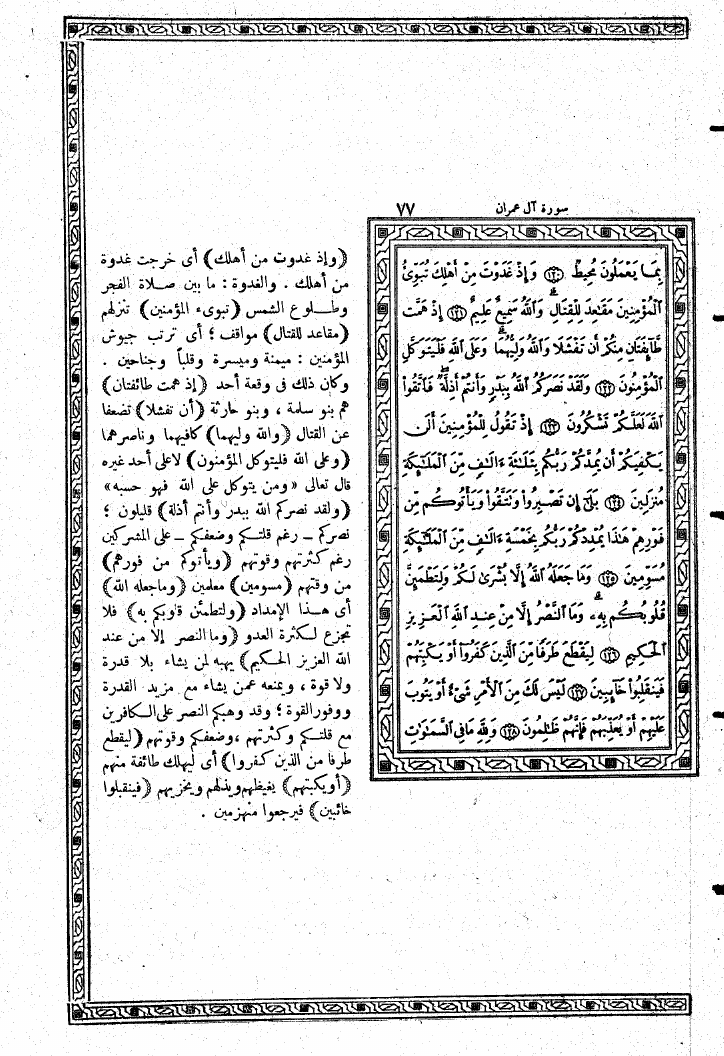 سورة آل عمران ٧٧
بِمَا يَعْمَلُونَ مُحِيطٌ ﴿١٢٠﴾ وَإِذْ غَدَوْتَ مِنْ أَهْلِكَ تُبَوِّئُ
ٱلْمُؤْمِنِينَ مَقَٰعِدَ لِلْقِتَالِ وَٱللَّهُ سَمِيعٌ عَلِيمٌ ﴿١٢١﴾ إِذْ هَمَّت
طَّآئِفَتَانِ مِنكُمْ أَن تَفْشَلَا وَٱللَّهُ وَلِيُّهُمَا وَعَلَى ٱللَّهِ فَلْيَتَوَكَّلِ
ٱلْمُؤْمِنُونَ ﴿١٢٢﴾ وَلَقَدْ نَصَرَكُمُ ٱللَّهُ بِبَدْرٍ وَأَنتُمْ أَذِلَّةٌ فَٱتَّقُوا۟
ٱللَّهَ لَعَلَّكُمْ تَشْكُرُونَ ﴿١٢٣﴾ إِذْ تَقُولُ لِلْمُؤْمِنِينَ أَلَن
يَكْفِيَكُمْ أَن يُمِدَّكُمْ رَبُّكُم بِثَلَٰثَةِ ءَالَٰفٍ مِّنَ ٱلْمَلَٰٓئِكَةِ
مُنزَلِينَ ﴿١٢٤﴾ بَلَىٰٓ إِن تَصْبِرُوا۟ وَتَتَّقُوا۟ وَيَأْتُوكُم مِّن
فَوْرِهِمْ هَٰذَا يُمْدِدْكُمْ رَبُّكُم بِخَمْسَةِ ءَالَٰفٍ مِّنَ ٱلْمَلَٰٓئِكَةِ
مُسَوِّمِينَ ﴿١٢٥﴾ وَمَا جَعَلَهُ ٱللَّهُ إِلَّا بُشْرَىٰ لَكُمْ وَلِتَطْمَئِنَّ
قُلُوبُكُم بِهِۦ وَمَا ٱلنَّصْرُ إِلَّا مِنْ عِندِ ٱللَّهِ ٱلْعَزِيزِ
ٱلْحَكِيمِ ﴿١٢٦﴾ لِيَقْطَعَ طَرَفًا مِّنَ ٱلَّذِينَ كَفَرُوٓا۟ أَوْ يَكْبِتَهُمْ
فَيَنقَلِبُوا۟ خَآئِبِينَ ﴿١٢٧﴾ لَيْسَ لَكَ مِنَ ٱلْأَمْرِ شَىْءٌ أَوْ يَتُوبَ
عَلَيْهِمْ أَوْ يُعَذِّبَهُمْ فَإِنَّهُمْ ظَٰلِمُونَ ﴿١٢٨﴾ وَلِلَّهِ مَا فِى ٱلسَّمَٰوَٰتِ
﴿وإذ غدوت من أهلك﴾ أى خرجت غدوة
من أهلك . والغدوة : ما بين صلاة الفجر
وطلوع الشمس ﴿تبوىء المؤمنين﴾ تنزلهم
﴿مقاعد للقتال﴾ مواقف ؛ أى ترتب جيوش
المؤمنين : ميمنة وميسرة وقلباً وجناحين .
وكان ذلك فى وقعة أحد ﴿إذ همت طائفتان﴾
هم بنو سلمة ، وبنو حارثة ﴿أن تفشلا﴾ تضعفا
عن القتال ﴿والله وليهما﴾ كافيهما وناصرهما
﴿وعلى الله فليتوكل المؤمنون﴾ لا على أحد غيره
قال تعالى «ومن يتوكل على الله فهو حسبه»
﴿ولقد نصركم الله ببدر وأنتم أذلة﴾ قليلون ؛
نصركم – رغم قلتكم وضعفكم – على المشركين
رغم كثرتهم وقوتهم ﴿ويأتوكم من فورهم﴾
من وقتهم ﴿مسومين﴾ معلمين ﴿وما جعله الله﴾
أى هذا الإمداد ﴿ولتطمئن قلوبكم به﴾ فلا
تجزع لكثرة العدو ﴿وما النصر إلا من عند
الله العزيز الحكيم﴾ يهبه لمن يشاء بلا قدرة
ولا قوة ، ويمنعه عمن يشاء مع مزيد القدرة
ووفور القوة ؛ وقد وهبكم النصر على الكافرين
مع قلتكم وكثرتهم ، وضعفكم وقوتهم ﴿ليقطع
طرفا من الذين كفروا﴾ أى ليهلك طائفة منهم
﴿أو يكبتهم﴾ يغيظهم ويذلهم ويخزيهم ﴿فينقلبوا
خائبين﴾ فيرجعوا منهزمين .